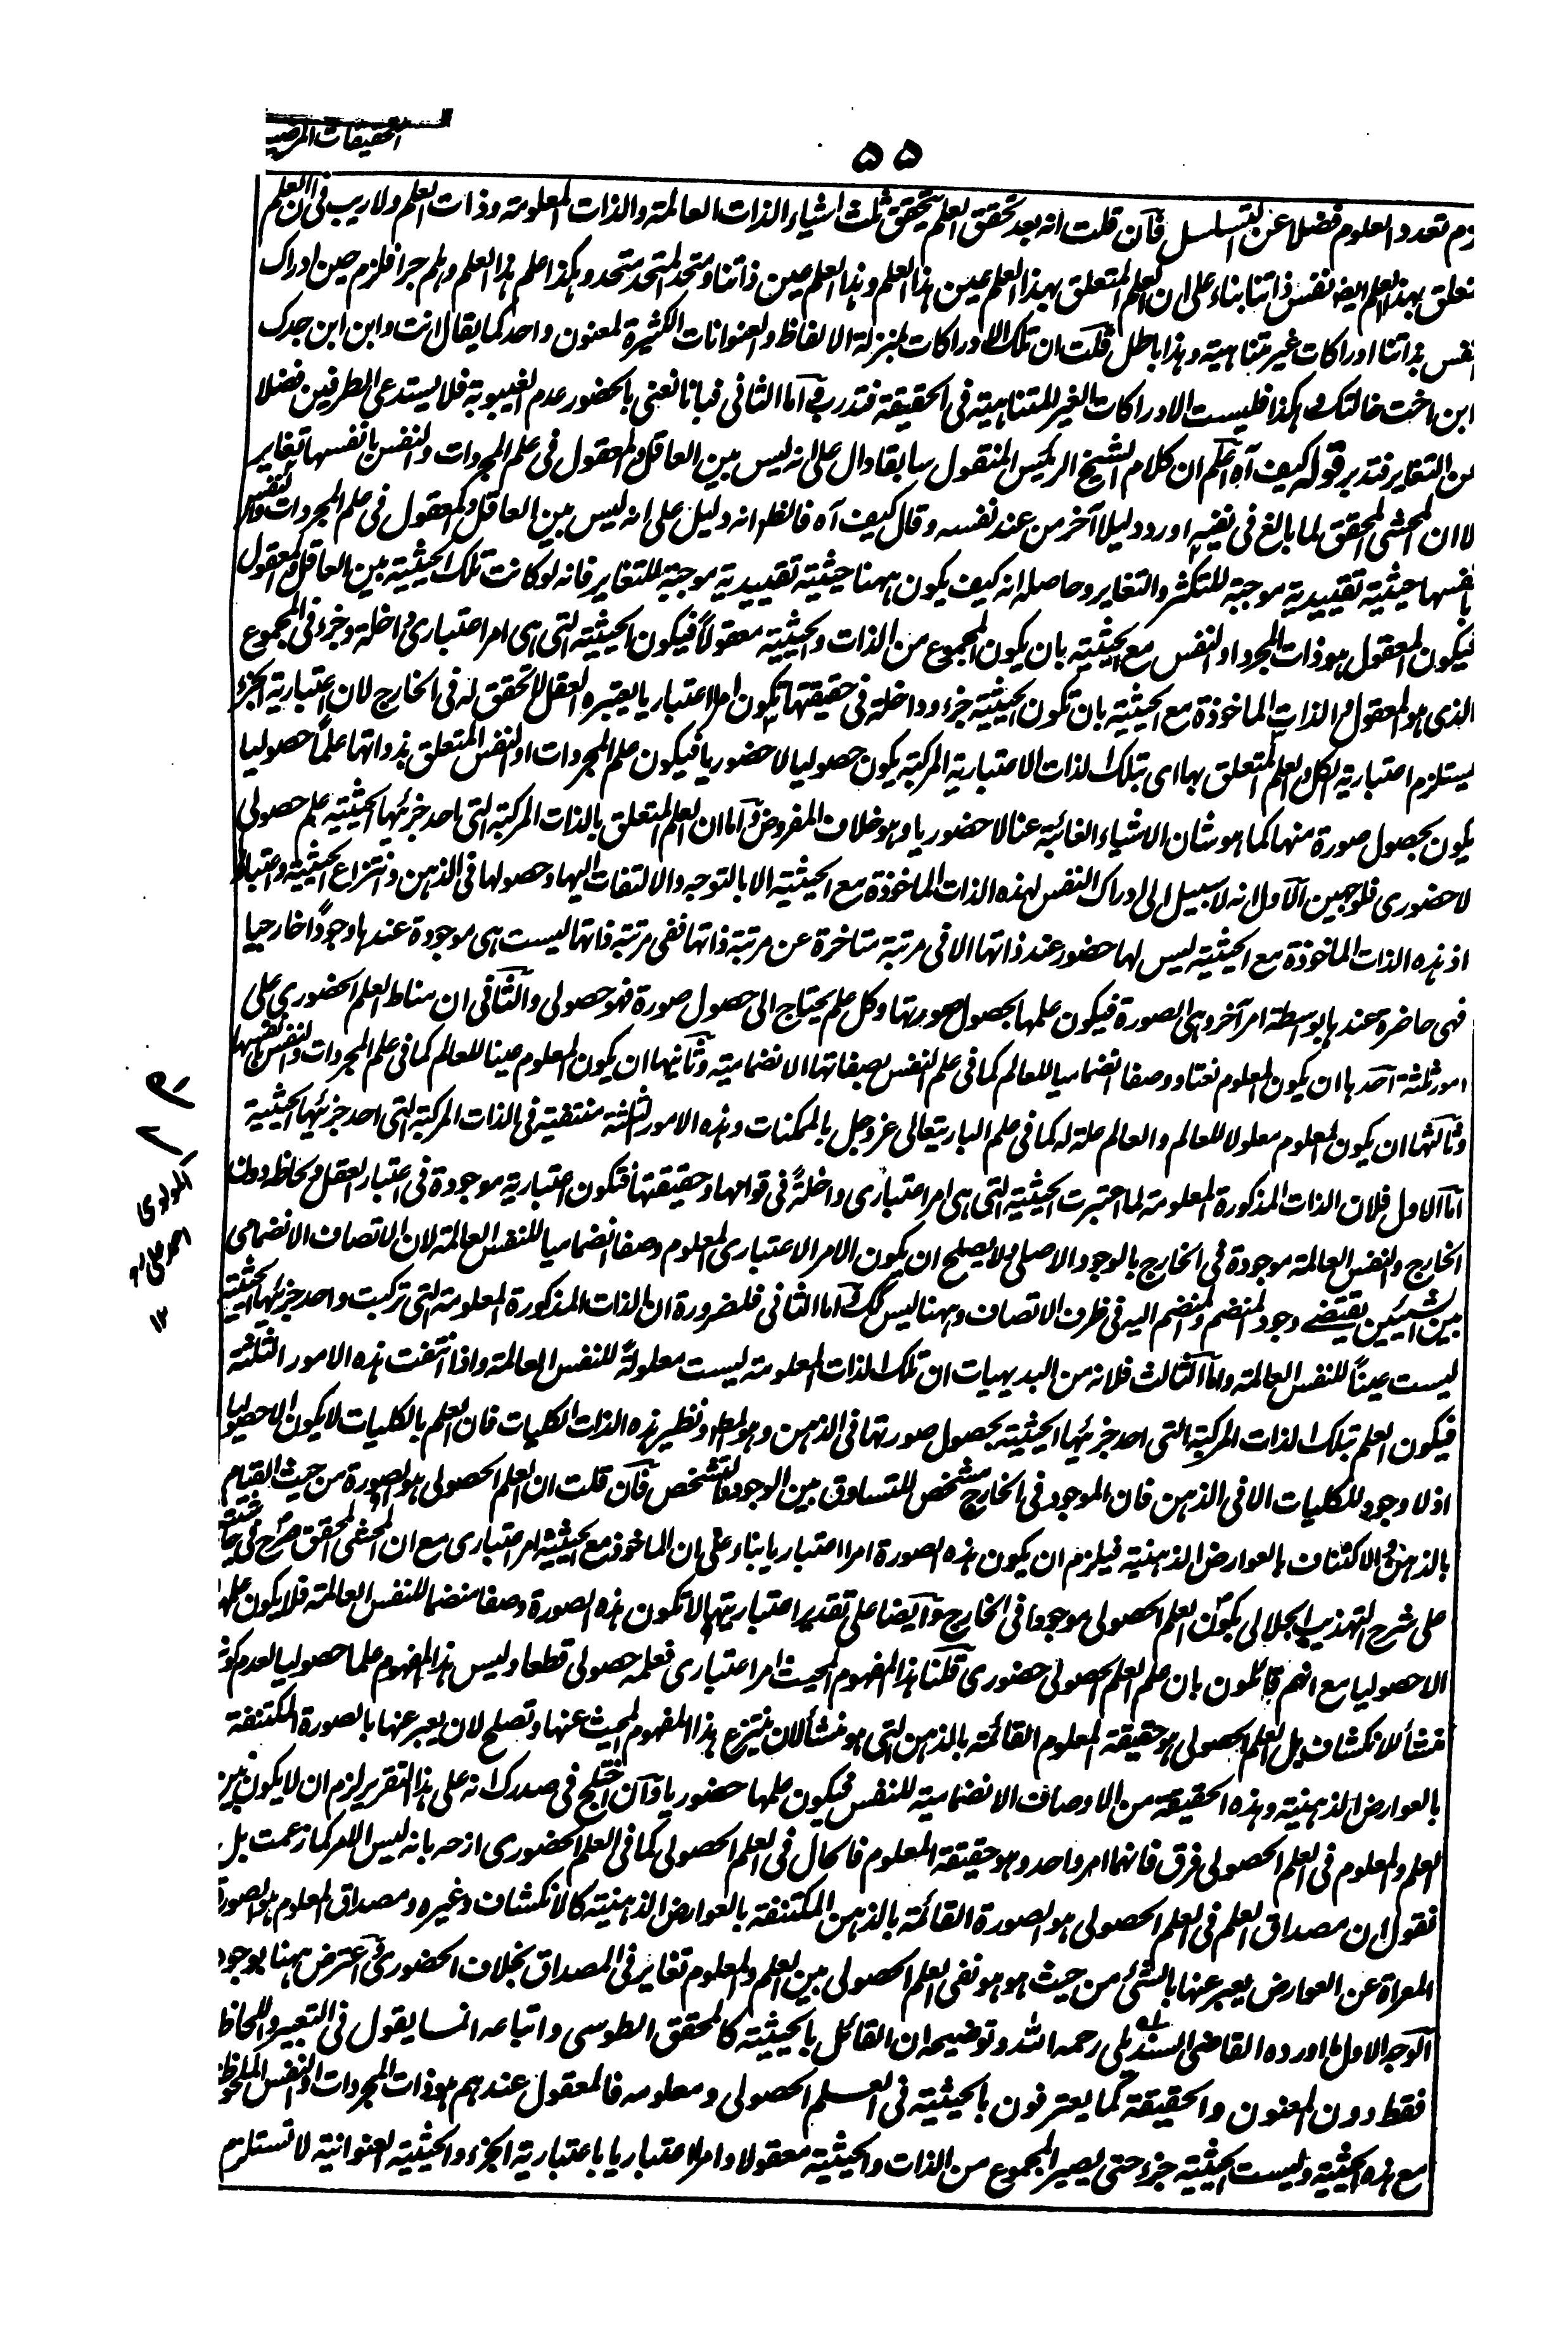 التحقيقات المرضية
۵۵
زم تعدد العلوم فضلا عن التسلسل فان قلت انه بعد تحقق العلم يتحقق ثلث اشياء الذات العالمة والذات المعلومة وذات العلم ولا ريب فى ان العلم
تعلق بهذا العلم ايضا نفس ذاتنا بناء على ان العلم المتعلق بهذا العلم عين هذا العلم وهذا العلم عين ذاتنا ومتحد المتحد متحد وهكذا علم هذا العلم وهلم جرا فلزم حين ادراك
نفس ذاتنا ادراكات غير متناهية وهذا باطل قلت ان تلك الادراكات بمنزلة الالفاظ والعنوانات الكثيرة لمعنون واحد كما يقال انت وابن ابن جدك
ابن اخت خالتك وهكذا فليست الادراكات الغير المتناهية فى الحقيقة فتدرب واما الثانى فبانا نعنى بالحضور عدم الغيبوبة فلا يستدعى الطرفين فضلا
من التغاير فتدبر قوله كيف آه اعلم ان كلام الشيخ الرئيس المنقول سابقا دال على انه ليس بين العاقل والمعقول فى علم المجردات والنفس بانفسها تغاير
لا ان المحشى المحقق لما بالغ فى نفيه اورد دليلا آخر من عند نفسه وقال كيف آه فالظ انه دليل على انه ليس بين العاقل والمعقول فى علم المجردات والنفس
بانفسها حيثية تقييدية موجبة للتكثر والتغاير وحاصله انه كيف يكون ههنا حيثية تقييدية موجبة للتغاير فانه لو كانت تلك الحيثية بين العاقل والمعقول
فيكون المعقول هو ذات المجرد او النفس مع الحيثية بان يكون المجموع من الذات والحيثية معقولاً فيكون الحيثية التى هى امر اعتبارى داخلة وجزء فى المجموع
الذى هو المعقول والذات الماخوذة مع الحيثية بان تكون الحيثية جزء وداخلة فى حقيقتها تكون امرا اعتباريا يعتبره العقل لا تحقق له فى الخارج لان اعتبارية الجزء
يستلزم اعتبارية الكل والعلم المتعلق بها اى بتلك الذات الاعتبارية المركبة يكون حصوليا لا حضوريا فيكون علم المجردات او النفس المتعلق بذواتها علماً حصوليا
يكون بحصول صورة منها كما هو شان الاشياء الغائبة عنا لا حضوريا وهو خلاف المفروض واما ان العلم المتعلق بالذات المركبة التى احد جزئيها الحيثية علم حصولى
لا حضورى فلوجهين الاول انه لا سبيل الى ادراك النفس لهذه الذات الماخوذة مع الحيثية الا بالتوجه والالتفات اليها وحصولها فى الذهن وانتزاع الحيثية واعتبار
اذ هذه الذات الماخوذة مع الحيثية ليس لها حضور عند ذاتها الا فى مرتبة متاخرة عن مرتبة ذاتها ففى مرتبة ذاتها ليست هى موجودة عندها وجوداً خارجيا
فهى حاضرة عندها بواسطة امر آخر وهى الصورة فيكون علمها بحصول صورتها وكل علم يحتاج الى حصول صورة فهو حصولى والثانى ان مناط العلم الحضورى على
امور ثلثة احدها ان يكون المعلوم نعتا ووصفا انضماميا للعالم كما فى علم النفس بصفاتها الانضمامية وثانيها ان يكون المعلوم عينا للعالم كما فى علم المجردات والنفس بانفسها
وثالثها ان يكون المعلوم معلولا للعالم والعالم علة له كما فى علم البارى تعالى عز وجل بالممكنات وهذه الامور الثلثة منتفية فى الذات المركبة التى احد جزئيها الحيثية
اما الاول فلان الذات المذكورة المعلومة لما اعتبرت الحيثية التى هى امر اعتبارى داخلةً فى قوامها وحقيقتها فتكون اعتبارية موجودة فى اعتبار العقل ولحاظه دون
الخارج والنفس العالمة موجودة فى الخارج بالوجود الاصلى ولا يصلح ان يكون الامر الاعتبارى المعلوم وصفا انضماميا للنفس العالمة لان الاتصاف الانضمامى
بين الشيئين يقتضى وجود المنضم والمنضم اليه فى ظرف الاتصاف وههنا ليس كك واما الثانى فلضرورة ان الذات المذكورة المعلومة التى تركبت واحد جزئيها الحيثية
ليست عيناً للنفس العالمة واما الثالث فلانه من البديهيات ان تلك الذات المعلومة ليست معلولةً للنفس العالمة واذا انتفت هذه الامور الثلثة
فيكون العلم بتلك الذات المركبة التى احد جزئيها الحيثية بحصول صورتها فى الذهن وهو المط ونظير هذه الذات الكليات فان العلم بالكليات لا يكون الا حصوليا
اذ لا وجود للكليات الا فى الذهن فان الموجود فى الخارج مشخص للتساوق بين الوجود والتشخص فان قلت ان العلم الحصولى هو الصورة من حيث القيام
بالذهن والاكتناف بالعوارض الذهنية فيلزم ان يكون هذه الصورة امرا اعتباريا بناء على ان الماخوذ مع الحيثية امر اعتبارى مع ان المحشى المحقق صرح فى حاشيته
على شرح التهذيب الجلالى بكون العلم الحصولى موجودا فى الخارج وايضا على تقدير اعتباريتها لا تكون هذه الصورة وصفا منضما للنفس العالمة فلا يكون علمها
الا حصوليا مع انهم قائلون بان علم العلم الحصولى حضورى قلنا هذا المفهوم المحيث امر اعتبارى فعلمه حصولى قطعا وليس هذا المفهوم علما حصوليا لعدم كونه
منشأ للانكشاف بل العلم الحصولى هو حقيقة المعلوم القائمة بالذهن التى هو منشأ لان ينتزع هذا المفهوم المحيث عنها وتصلح لان يعبر عنها بالصورة المكتنفة
بالعوارض الذهنية وهذه الحقيقة من الاوصاف الانضمامية للنفس فيكون علمها حضوريا وان اختلج فى صدرك انه على هذا التقرير لزم ان لا يكون بين
العلم والمعلوم فى العلم الحصولى فرق فانهما امر واحد وهو حقيقة المعلوم فالحال فى العلم الحصولى كما فى العلم الحضورى ازحه بانه ليس الامر كما زعمت بل
نقول ان مصداق العلم فى العلم الحصولى هو الصورة القائمة بالذهن المكتنفة بالعوارض الذهنية كالانكشاف وغيره ومصداق المعلوم هو الصورة
المعراة عن العوارض يعبر عنها بالشئ من حيث هو هو ففى العلم الحصولى بين العلم والمعلوم تغاير فى المصداق بخلاف الحضورى ثم اعترض ههنا بوجوه
الوجه الاول ما اورده القاضى السنديلى رحمه الله وتوضيحه ان القائل بالحيثية كالمحقق الطوسى واتباعه انما يقول فى التعبير واللحاظ
فقط دون المعنون والحقيقة كما يعترفون بالحيثية فى العلم الحصولى ومعلومه فالمعقول عندهم هو ذات المجردات والنفس الملحوظة
مع هذه الحيثية وليست الحيثية جزء حتى يصير المجموع من الذات والحيثية معقولا وامرا اعتباريا باعتبارية الجزء والحيثية العنوانية لا تستلزم
المولوى
احمد على
۱۲